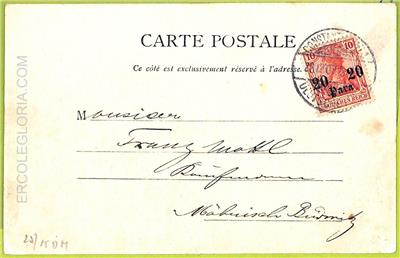 CARTE POSTALE
Ce côté est exclusivement réservé à l'adresse.
CONSTANT
10 10
20 20
Para
REICH
Monsieur
Franz
Kaufmann
Mährisch Budwitz
ERCOLEGLORIA.COM